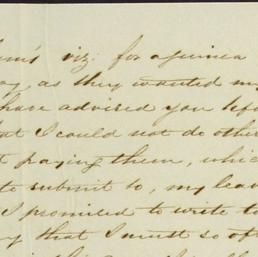 viz: for a guinea
as they wanted my
have advised you befo
at I could not do other
t paying them, whic
to submit to, my leav
I promised to write to
y that I must so of